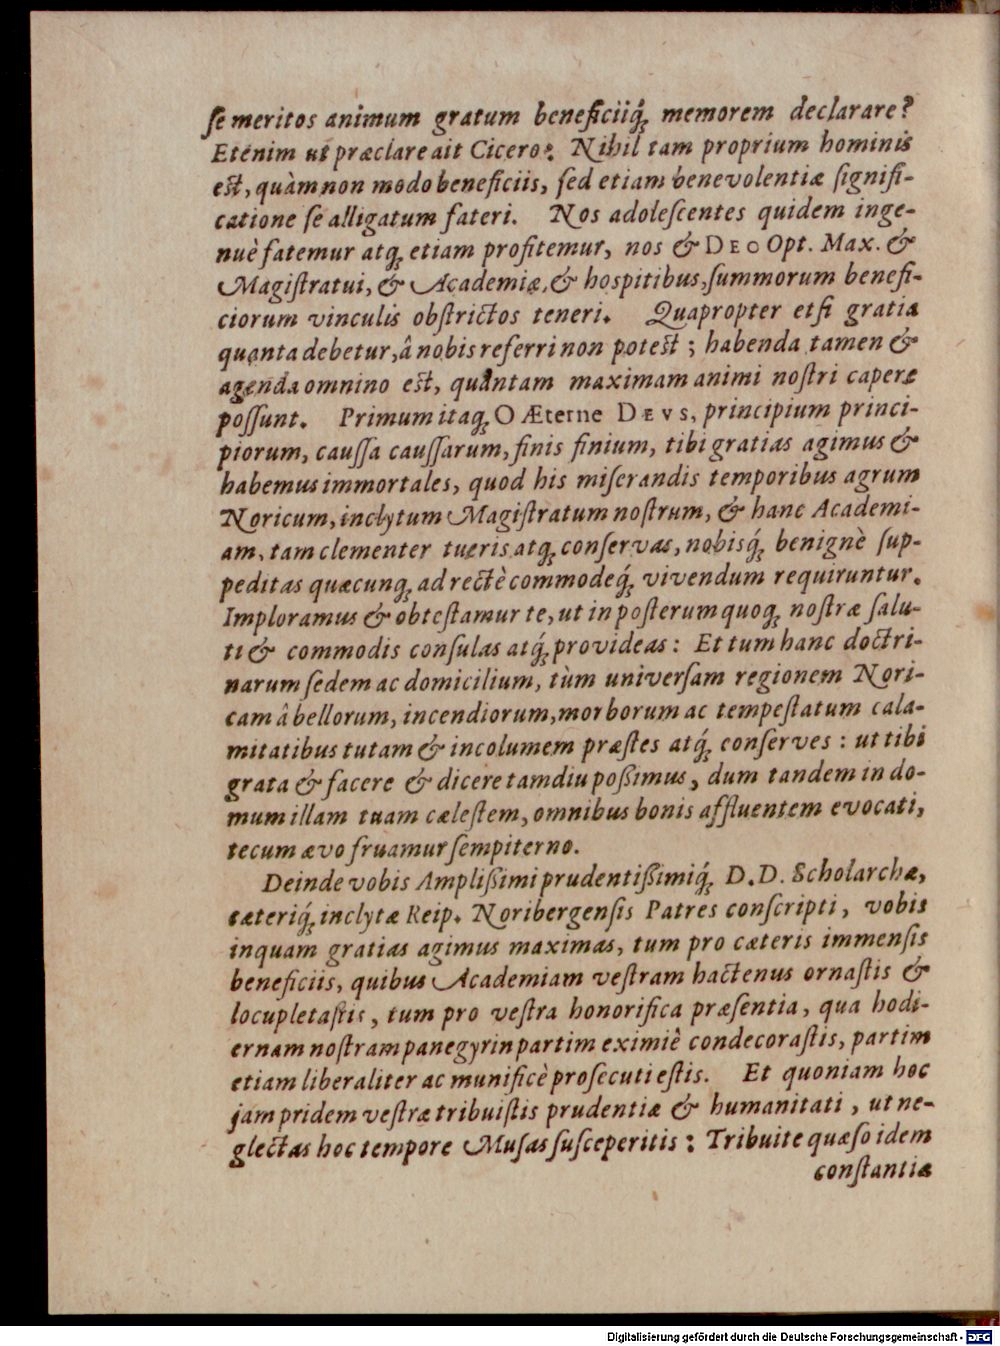 ſe meritos animum gratum beneficiiq́; memorem declarare?
Etenim ut præclare ait Cicero: Nihil tam proprium hominis
est, quàm non modo beneficiis, ſed etiam benevolentiæ ſignifi-
catione ſe alligatum fateri. Nos adoleſcentes quidem inge-
nuè fatemur atq; etiam profitemur, nos & DEO Opt. Max. &
Magiſtratui, & Academiæ, & hospitibus, ſummorum benefi-
ciorum vinculis obſtrictos teneri. Quapropter etſi gratia
quanta debetur, â nobis referri non potest; habenda tamen &
agenda omnino est, quantam maximam animi noſtri capere
poſſunt. Primum itaq; O Æterne DEVS, principium princi-
piorum, cauſſa cauſſarum, finis finium, tibi gratias agimus &
habemus immortales, quod his miſerandis temporibus agrum
Noricum, inclytum Magiſtratum noſtrum, & hanc Academi-
am, tam clementer tueris atq; conſervas, nobisq́; benignè ſup-
peditas quæcunq; ad rectè commodeq́; vivendum requiruntur.
Imploramus & obteſtamur te, ut in poſterum quoq; noſtræ ſalu-
ti & commodis conſulas atq́; provideas: Et tum hanc doctri-
narum ſedem ac domicilium, tùm univerſam regionem Nori-
cam â bellorum, incendiorum, morborum ac tempeſtatum cala-
mitatibus tutam & incolumem præſtes atq́; conſerves: ut tibi
grata & facere & dicere tamdiu poßimus, dum tandem in do-
mum illam tuam cæleſtem, omnibus bonis affluentem evocati,
tecum ævo fruamur ſempiterno.
Deinde vobis Amplißimi prudentißimiq́; D.D. Scholarchæ,
cæteriq́; inclytæ Reip. Noribergenſis Patres conſcripti, vobis
inquam gratias agimus maximas, tum pro cæteris immenſis
beneficiis, quibus Academiam veſtram hactenus ornaſtis &
locupletaſtis, tum pro veſtra honorifica præſentia, qua hodi-
ernam noſtram panegyrin partim eximiè condecoraſtis, partim
etiam liberaliter ac munificè proſecuti eſtis. Et quoniam hoc
jam pridem veſtræ tribuiſtis prudentiæ & humanitati, ut ne-
glectas hoc tempore Muſas ſuſceperitis: Tribuite quæſo idem
conſtantiæ
Digitalisierung gefördert durch die Deutsche Forschungsgemeinschaft - DFG